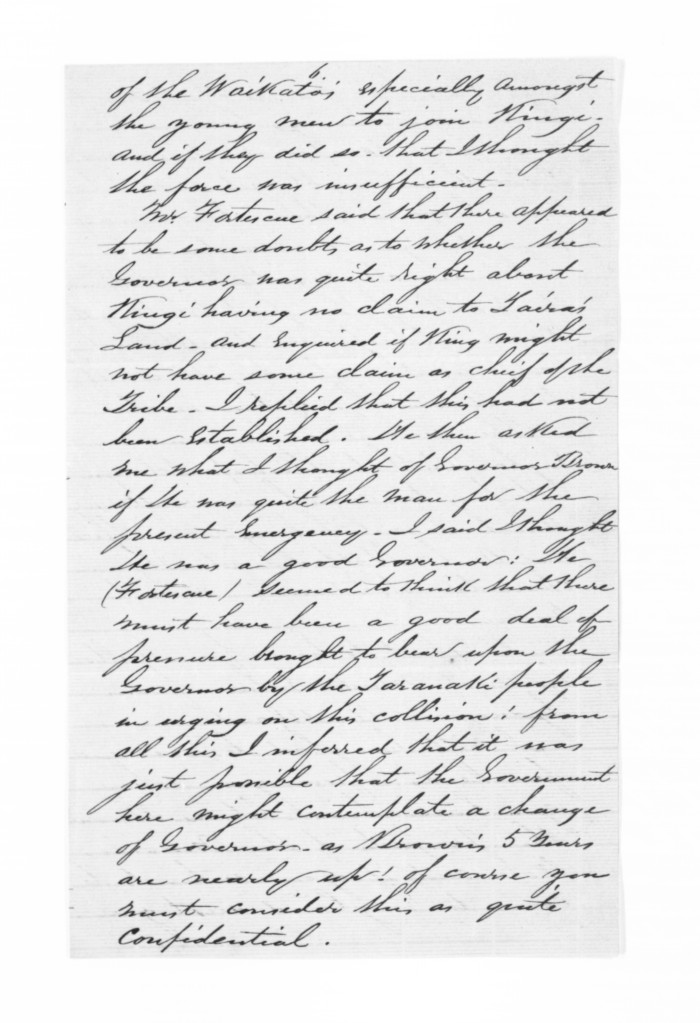 6
of the Waikatos especially amongst
the young men to join Kingi -
and if they did so - that I thought
the force was insufficient -
Mr. Fortescue said that there appeared
to be some doubts as to whether the
Governor was quite right about
Kingi having no claim to Taira's
Land - and Enquired if King might
not have some claim as chief of the
Tribe - I replied that this had not
been Established. He then asked
me what I thought of Governor Brown
if He was quite the man for the
present Emergency - I said I thought
He was a good Governor: He
(Fortescue) seemed to think that there
must have been a good deal of
pressure brought to bear upon the
Governor by the Taranaki people
in urging on this collision! from
all this I inferred that it was
just possible that the Government
here might contemplate a change
of Governor - as Brown's 5 Years
are nearly up! of course you
must consider this as quite
Confidential.